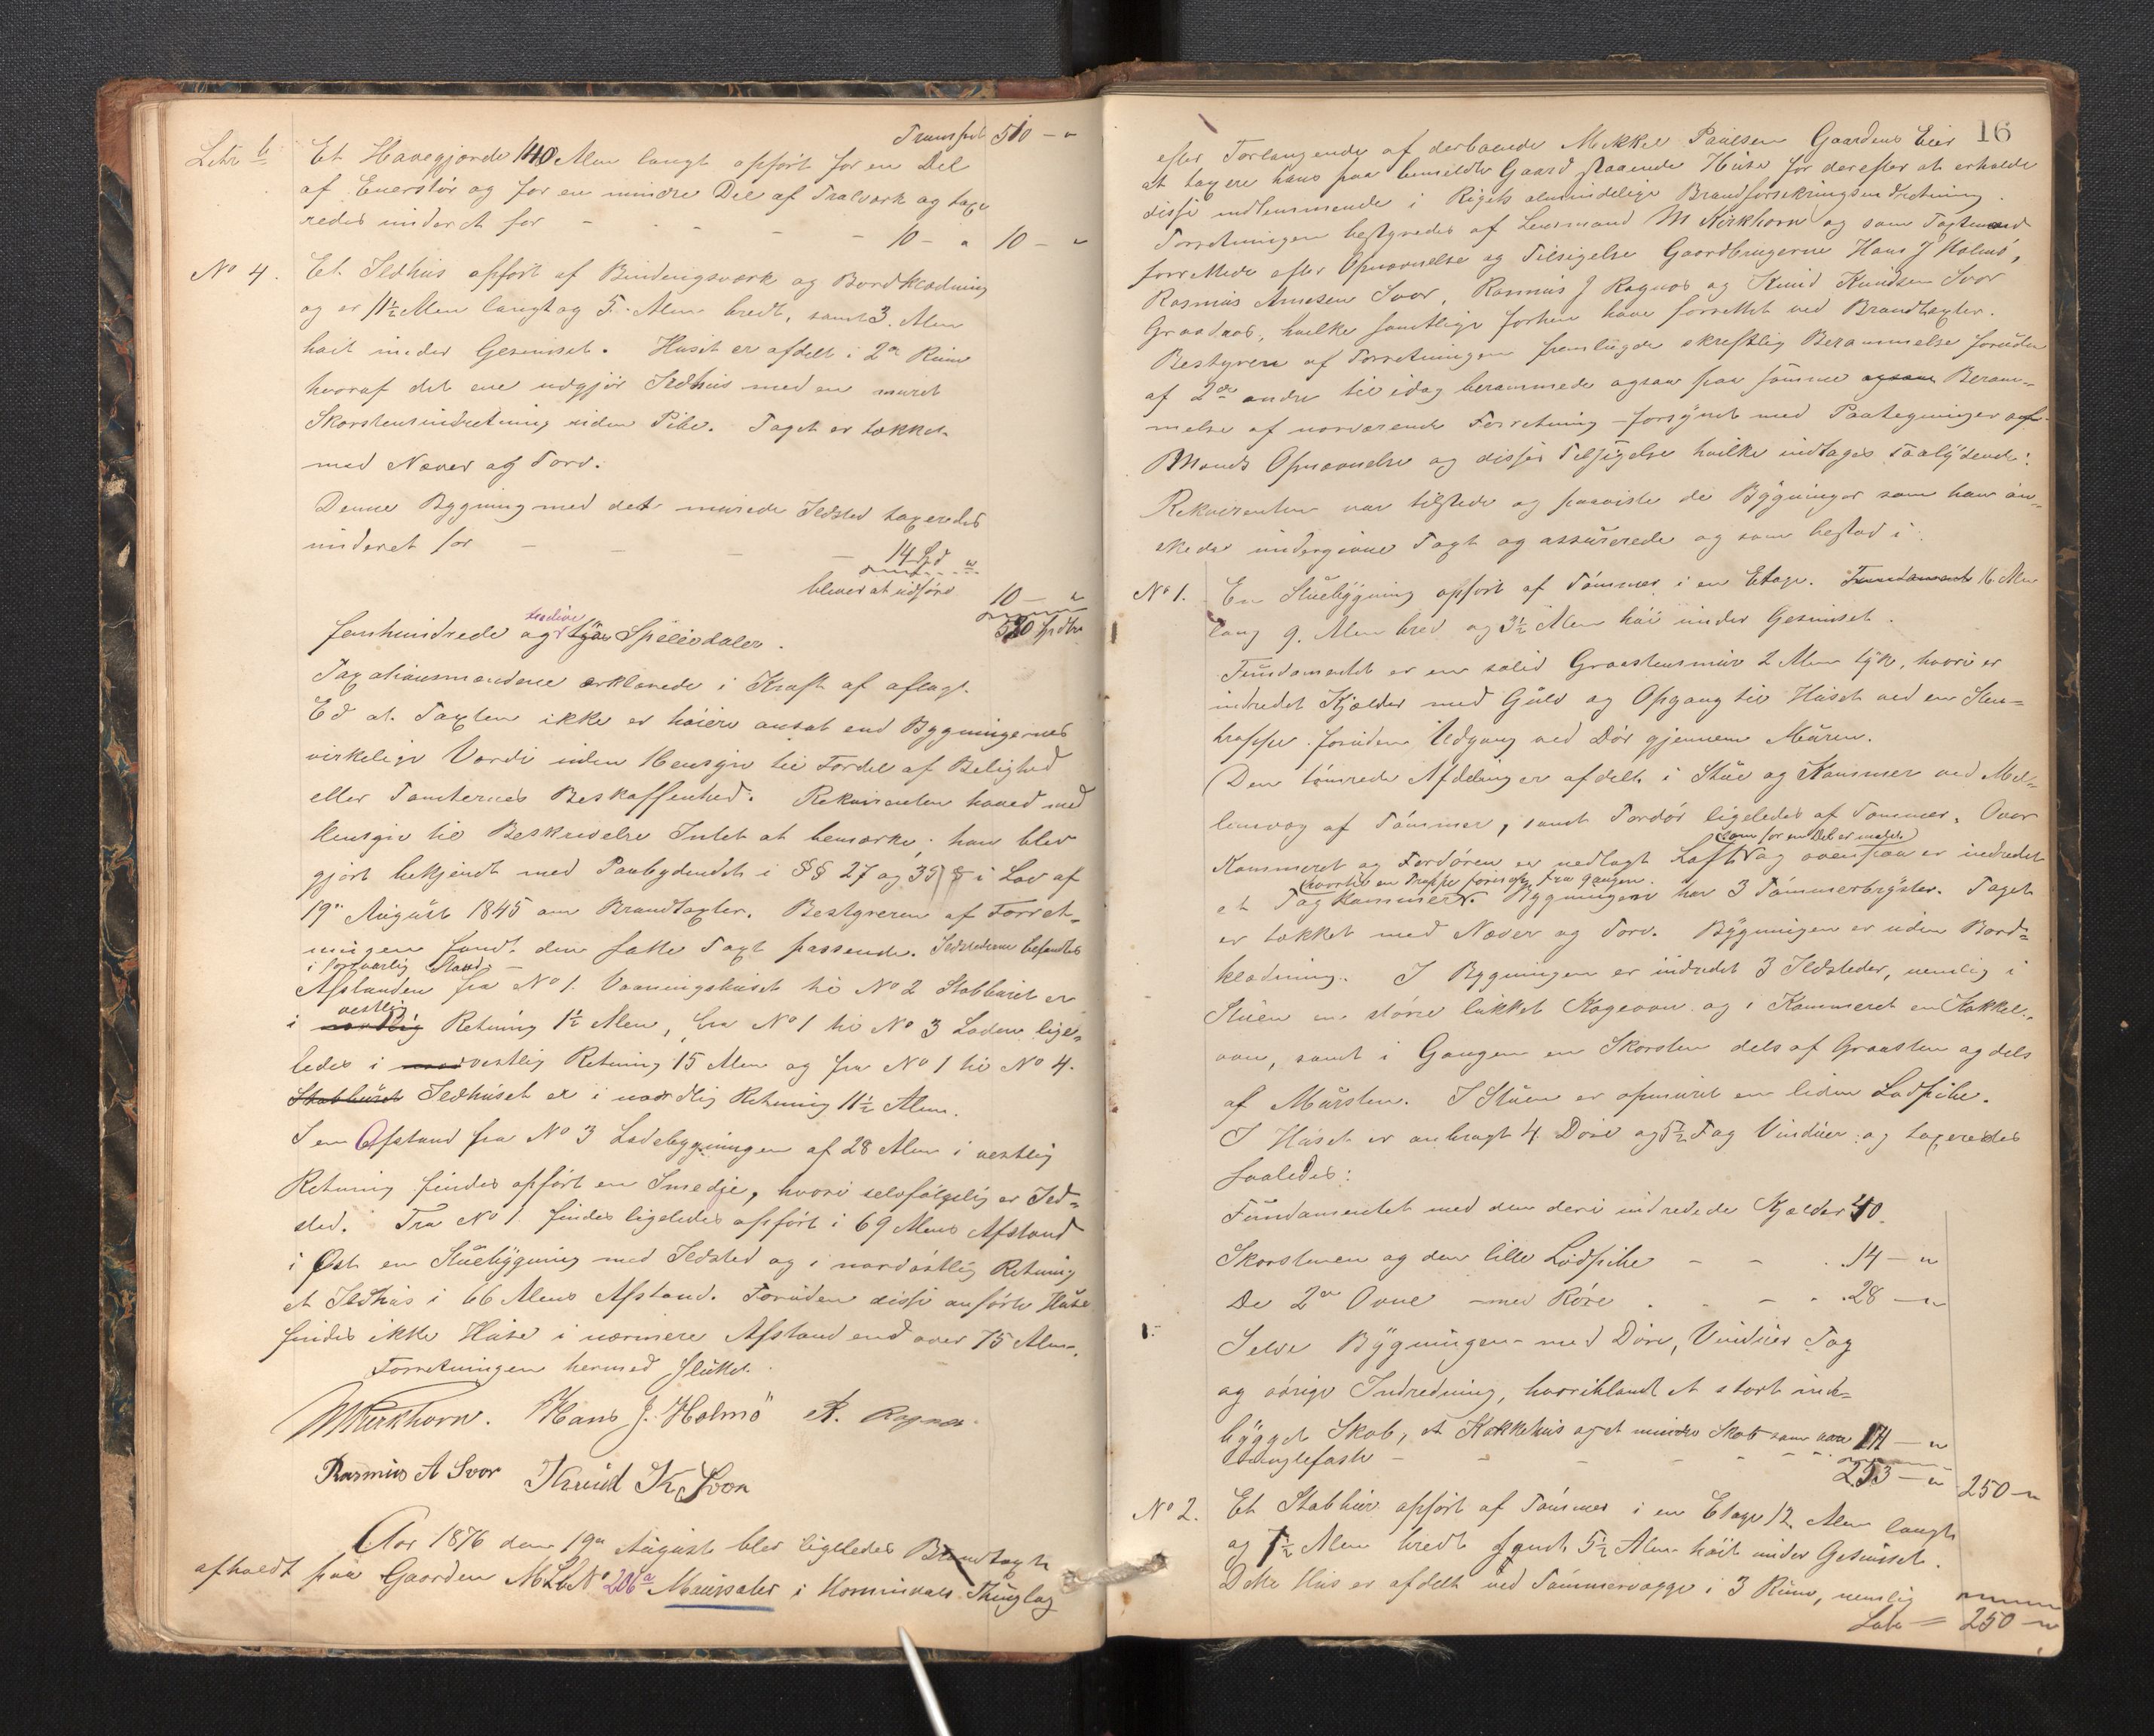 Transport 510 – "
Litr b Et Havegjærde 140 Alen langt opført for en Del
af Enerstør og for en mindre Del af Tralværk og taxe-
redes underet for – – – – 10 – " 10 – "
No 4. Et Ildhus opført af Bindingsværk og Bordklædning
og er 11½ Alen langt og 5 Alen bredt, samt 3 Alen
høit under Gesimset. Huset er afdelt i 2de Rum
hvoraf det ene udgjør Ildhus med en muret
Skorstensindretning uden Pibe. Taget er tækket
med Næver og Torv.
Denne Bygning med det murede Ildsted taxeredes
underet for – – – – 14 Spd "
bliver at udføre 10 – "
520 Spdlr
femhundrede og tredive tyve Speciedaler.
Taxationsmændene erklærede i Kraft af aflagt
Ed at Taxten ikke er høiere ansat end Bygningernes
virkelige Værdi uden Hensyn til Fordel af Belighed
eller Tomternes Beskaffenhed. Rekvirenten havde med
Hensyn til Beskrivelse Intet at bemærke; han blev
gjort bekjendt med Paabydendet i §§ 27 og 35 i Lov af
19de August 1845 om Brandtaxter. Bestyreren af Forret-
ningen fandt den satte Taxt passende. Ildstederne befandtes
i forsvarlig Stand. –
Afstanden fra No 1. Vaaningshuset til No 2 Stabburet er
vestlig
i nordlig Retning 1½ Alen, fra No 1 til No 3 Laden lige-
ledes i vestlig Retning 15 Alen og fra No 1 til No 4.
Stabburet Ildhuset er i nordlig Retning 11½ Alen.
I en Afstand fra No 3 Ladebygningen af 28 Alen i vestlig
Retning findes opført en Smedje, hvori selvfølgelig er Ild-
sted. Fra No 1 findes ligeledes opført i 69 Alens Afstand
i Øst en Stuebygning med Ildsted og i nordøstlig Retning
et Ildhus i 66 Alens Afstand. Foruden disse anførte Huse
findes ikke Huse i nærmere Afstand end over 75 Alen.
Forretningen hermed sluttet.
MKirkhorn. Hans J. Holmö R. Ragnos
Rasmus A Svor Knud K. Svor
Aar 1876 den 19de August blev ligeledes Brandtaxt
afholdt paa Gaarden M. L. No 206a Maursater i Hornindals Thinglag
16
efter Forlangende af derboende Mikkel Paulsen Gaardens Eier
at taxere hans paa bemeldte Gaard staaende Huse for derefter at erholde
disse indlemmende i Rigets almindelige Brandforsikringsindretning.
Forretningen bestyredes af Lensmand M Kirkhorn og som Taxtmænd
fremmødte efter Opnævnelse og Tilsigelse Gaardbrugerne Hans J Holmö,
Rasmus Arnesen Svor, Rasmus J Ragnos og Knud Knudsen Svor
Graadaos, hvilke samtlige forhen have forrettet ved Brandtaxter.
Bestyreren af Forretningen fremlagde skriftlig Berammelse foruden
af 2de andre til idag berammede ogsaa paa samme ogsaa Beram-
melse af nærværende Forretning forsynet med Paategninger om
Mænds Opnævnelse og disses Tilsigelse hvilke indtages saalydende:
Rekvirenten var tilstede og paaviste de Bygninger som han øn-
skede undergivne Taxt og assurerede og som bestod i:
No 1. En Stuebygning opført af Tømmer i en Etage. Fundament 16 Alen
lang 9. Alen bred og 3½ Alen høi under Gesimset.
Fundamentet er en solid Graastensmur 2 Alen tyk, hvori er
indredet Kjælder med Gulv og Opgang til Huset ved en Sten-
trappe foruden Udgang ved Dør gjennem Muren.
Den tømrede Afdeling er afdelt i Stue og Kammer ved Mel-
lemvæg af Tømmer, samt Fordør ligeledes af Tømmer. Over
(som for en Del er malet)
Kammeret og Fordøren er nedlagt Loft og ovenpaa er indredet
hvortil en Trappe fører op fra Gangen.
et Tagkammer. Bygningen har 3 Tømmerbryster. Taget
er tækket med Næver og Torv. Bygningen er uden Bord-
klædning. I Bygningen er indredet 3 Ildsteder, nemlig i
Stuen en større lukket Kogeovn og i Kammeret en Kakkel-
ovn, samt i Gangen en Skorsten dels af Graasten og dels
af Mursten. I Stuen er opmuret en liden Lodpibe.
I Huset er anbragt 4 Døre og 5½ Fag Vinduer og taxeredes
saaledes:
Fundamentet med den deri indredede Kjælder 40
Skorstenen og den lille Lodpibe – – . 14 – "
De 2de Ovne med Røre . . – . 28 – "
Selve Bygningen med Døre, Vinduer Tag
og øvrige Indredning, hvoriblandt et stort ind-
bygget Skab, et Kokkehus og et mindre Skab som var 171 – "
vinglefaste – – – – 253 – " 250 – "
No 2. Et Stabbur opført af Tømmer i en Etage 12 Alen langt
og 7½ Alen bredt samt 5½ Alen høit under Gesimset.
Dette Hus er afdelt ved Tømmervægge i 3 Rum, nemlig
Lats = 250 – "